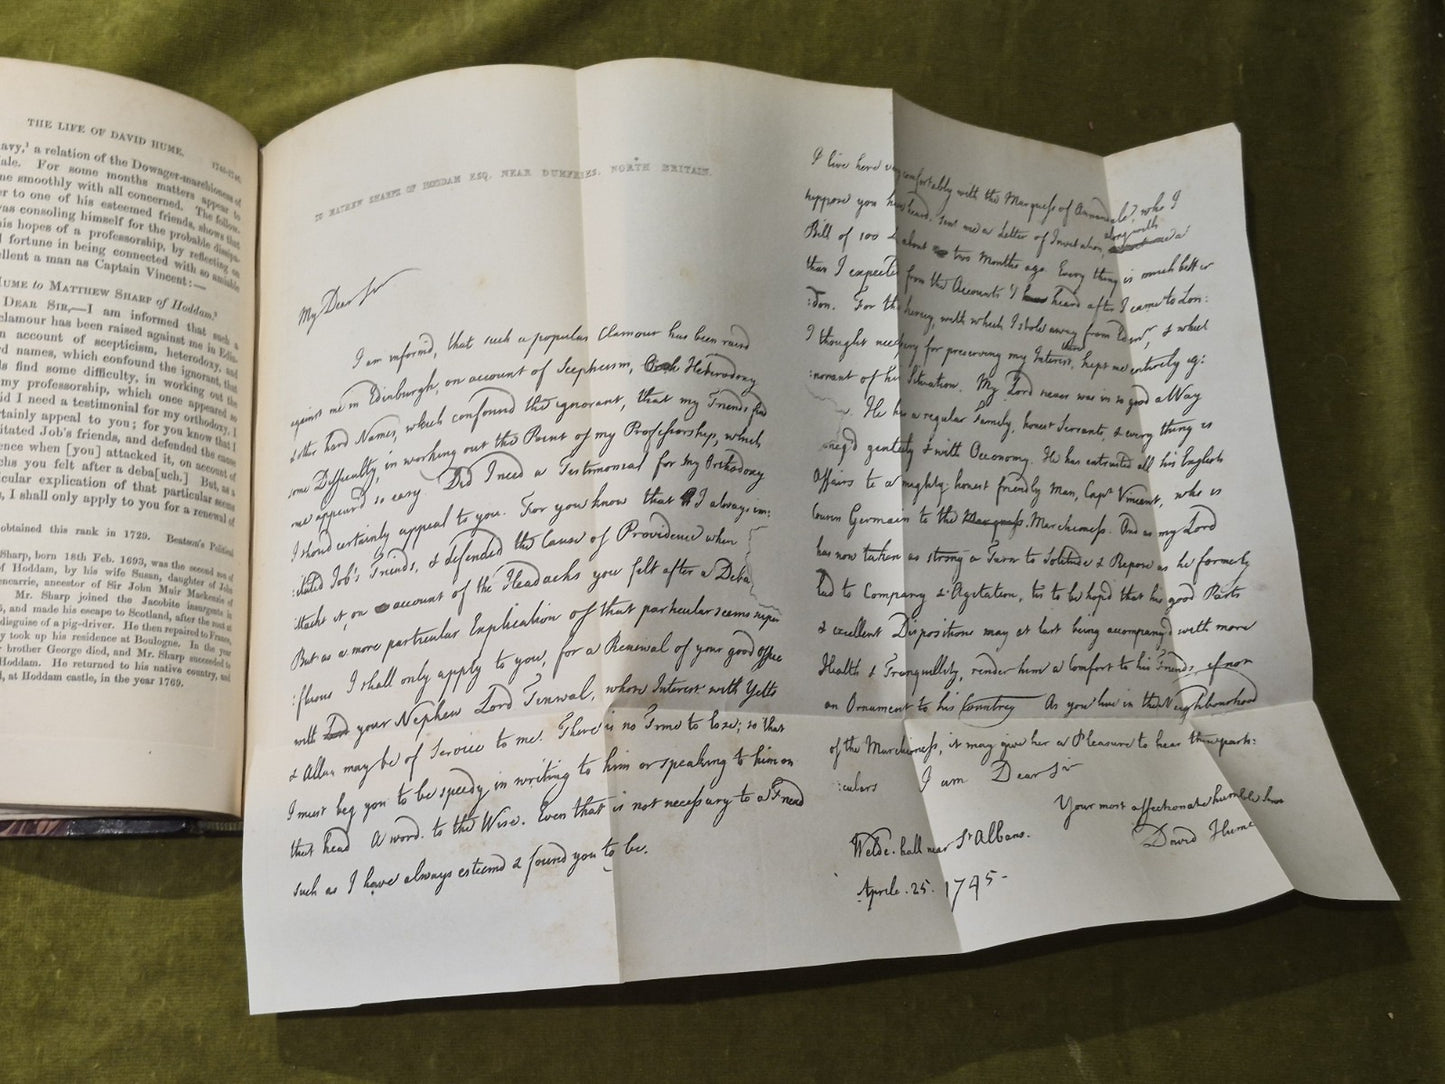 THE LIFE OF DAVID HUME.
1740-1746.
avy,¹ a relation of the Dowager-marchioness of
ale. For some months matters appear to
ne smoothly with all concerned. The follow-
er to one of his esteemed friends, shows that
was consoling himself for the probable dissipa-
his hopes of a professorship, by reflecting on
l fortune in being connected with so amiable
ellent a man as Captain Vincent:—
HUME to MATTHEW SHARP of Hoddam.²
DEAR SIR,—I am informed that such a
clamour has been raised against me in Edin-
n account of scepticism, heterodoxy, and
rd names, which confound the ignorant, that
ds find some difficulty, in working out the
my professorship, which once appeared so
id I need a testimonial for my orthodoxy, I
rtainly appeal to you; for you know that I
itated Job's friends, and defended the cause
ence when [you] attacked it, on account of
chs you felt after a deba[uch.] But, as a
icular explication of that particular seems
s, I shall only apply to you for a renewal of
obtained this rank in 1729. Beatson's Political
Sharp, born 18th Feb. 1693, was the second son of
of Hoddam, by his wife Susan, daughter of John
encarrie, ancestor of Sir John Muir Mackenzie of
Mr. Sharp joined the Jacobite insurgents in
, and made his escape to Scotland, after the rout at
disguise of a pig-driver. He then repaired to France,
y took up his residence at Boulogne. In the year
r brother George died, and Mr. Sharp succeeded to
Hoddam. He returned to his native country, and
d, at Hoddam castle, in the year 1769.
TO MATHEW SHARPE OF HODDAM ESQ. NEAR DUMFRIES. NORTH BRITAIN.
My Dear Sir
I am inform'd, that such a popular Clamour has been raisd
against me in Edinburgh, on account of Scepticism, Heterodoxy
& other hard Names, which confound the ignorant, that my Friends find
some Difficulty, in working out the Point of my Professorship, which
once appear'd so easy. Did I need a Testimonial for my Orthodoxy
I shoud certainly appeal to you. For you know that I always im:
:itated Job's Friends, & defended the Cause of Providence when
attackt it, on account of the Headachs you felt after a Deba
But as a more particular Explication of that particular seems super
:fluous I shall only apply to you, for a Renewal of your good Offices
with your Nephew Lord Tinwal, whose Interest with Yetts
& Allan may be of Service to me. There is no Time to lose; so that
I must beg you to be speedy in writing to him or speaking to him on
that head A word. to the Wise. Even that is not necessary to a Friend
such as I have always esteemd & found you to be.
I live here very comfortably with the Marquess of Annandale, who I
suppose you have heard. sent me a Letter of Invitation, along with a
Bill of 100 £ about two Months ago. Every thing is much better
than I expected from the Accounts I heard after I came to Lon:
:don. For the secrecy, with which I stole away from & which
I thought necessary for preserving my Interest there, kept me entirely ig:
:norant of his Situation. My Lord never was in so good a Way
He has a regular Family, honest Servants, & every thing is
genteely & with Oeconomy. He has entrusted all his English
Affairs to a mighty honest friendly Man, Capt Vincent, who is
Cousin Germain to the Marchioness. And as my Lord
has now taken as strong a Turn to Solitude & Repose as he formerly
had to Company & Agitation, tis to be hop'd that his good Parts
& excellent Dispositions may at last being accompany'd with more
Health & Tranquillity, render him a Comfort to his Friends, if not
an Ornament to his Country As you live in the Neighbourhood
of the Marchioness, it may give her a Pleasure to hear these parti:
:culars I am Dear Sir
Your most affectionate humble
David Hume
Welde-hall near St Albans.
Aprile. 25. 1745-